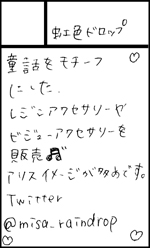 虹色ドロップ
童話をモチーフ
にした、
レジンアクセサリーや
ビジューアクセサリーを
販売
アリスイメージが多めです。
Twitter
@misa_raindrop